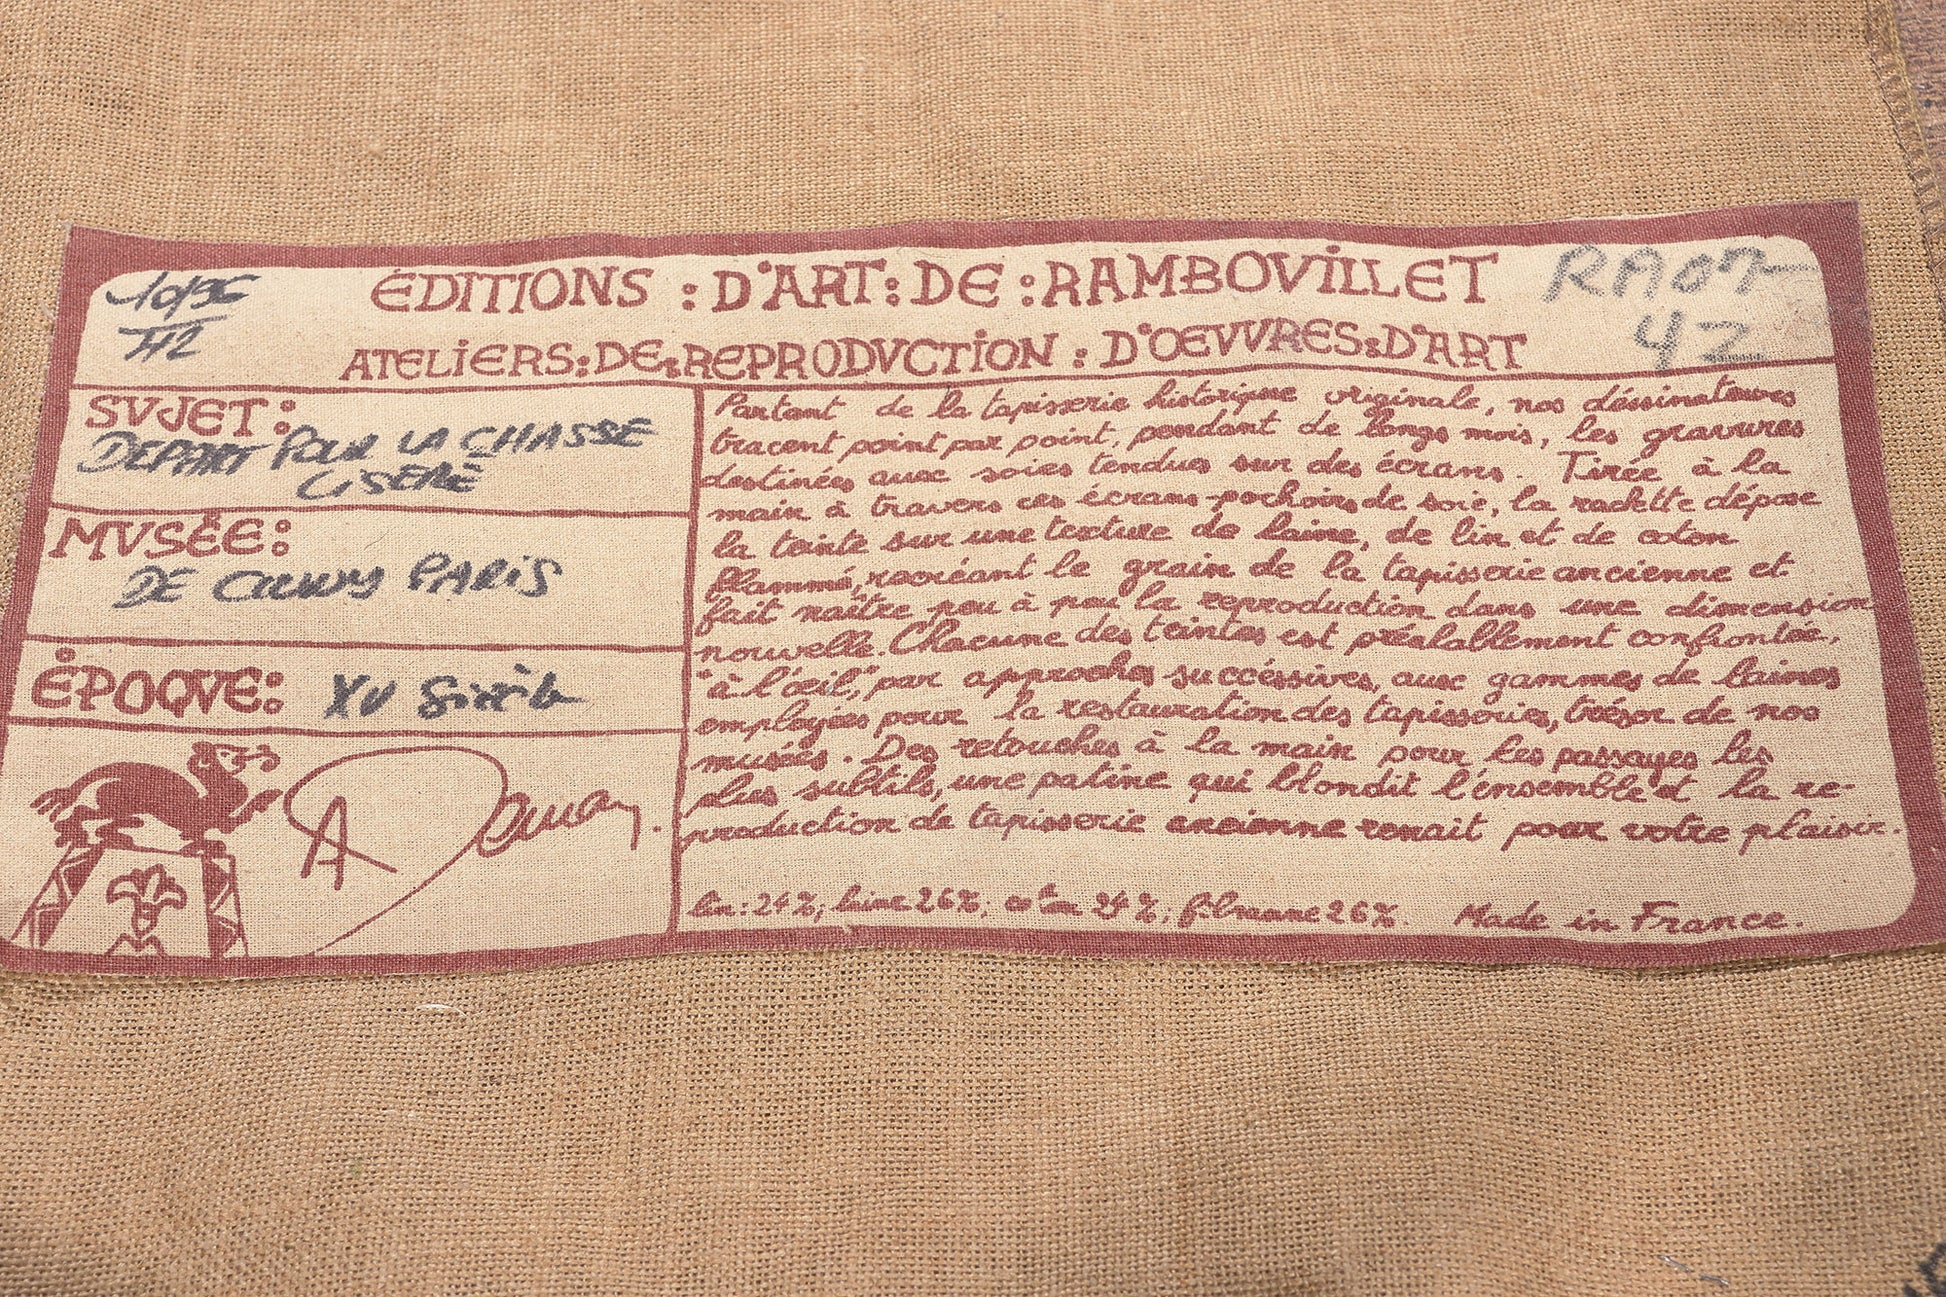 ÉDITIONS : D'ART : DE : RAMBOVILLET
ATELIERS : DE : REPRODVCTION : D'OEVVRES : D'ART
RA07
42
SVJET :
DEPART POUR LA CHASSE
MVSÉE :
DE CLUNY PARIS
ÉPOQVE : XV Siècle
Partant de la tapisserie historique originale, nos déssinateurs
tracent point par point, pendant de longs mois, les gravures
destinées aux soies tendues sur des écrans. Tirée à la
main à travers ces écrans-pochoirs de soie, la raclette dépose
la teinte sur une texture de laine, de lin et de coton
flammé, recréant le grain de la tapisserie ancienne et
fait naître peu à peu la reproduction dans une dimension
nouvelle. Chacune des teintes est préalablement confrontée,
"à l'œil", par approches succéssives, aux gammes de laines
employées pour la restauration des tapisseries, trésor de nos
musées. Des retouches à la main pour les passages les
plus subtils, une patine qui blondit l'ensemble et la re-
production de tapisserie ancienne renait pour votre plaisir.
lin : 24 %; laine 26 %; coton 24 %; fibranne 26 %. Made in France.